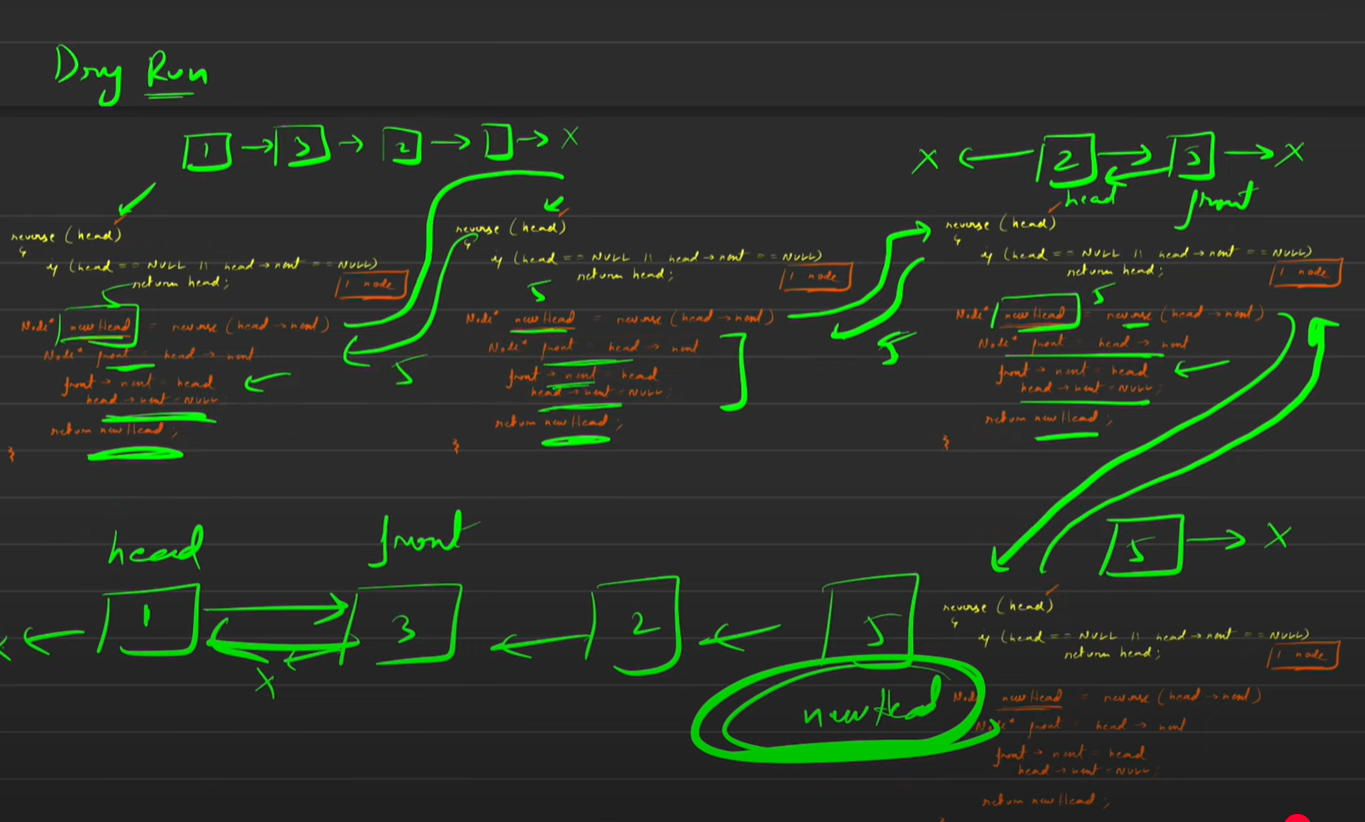 Dry Run
1 → 3 → 2 → → X
X ← 2 → 5 → X
head front
reverse (head)
if (head == NULL || head → next == NULL)
return head;
1 node
5
Node* newHead = reverse (head → next)
Node* front = head → next
front → next = head
head → next = NULL;
return newHead;
}
5
reverse (head)
if (head == NULL || head → next == NULL)
return head;
1 node
5
Node* newHead = reverse (head → next)
Node* front = head → next
front → next = head
head → next = NULL;
return newHead;
}
5
reverse (head)
if (head == NULL || head → next == NULL)
return head;
1 node
5
Node* newHead = reverse (head → next)
Node* front = head → next
front → next = head
head → next = NULL;
return newHead;
}
head front
1 3 2 5
X
X
newHead
5 → X
reverse (head)
if (head == NULL || head → next == NULL)
return head;
1 node
Node* newHead = reverse (head → next)
Node* front = head → next
front → next = head
head → next = NULL;
return newHead;